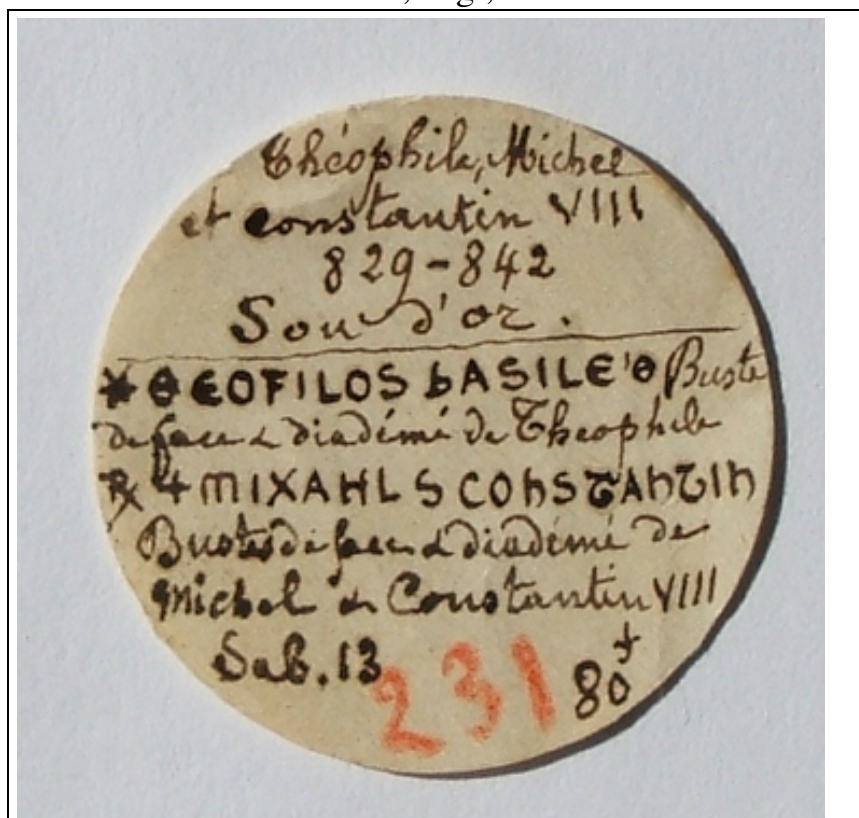 Théophile, Michel
et constantin VIII
829-842
Sou d'or.
* ΘEOFILOS bASILE'Θ Buste
de face & diadémé de Theophile
R 4 MIXAHL S COhSTAhTIh
Bustes de face & diadémé de
Michel & Constantin VIII
Sab. 13
231
80f